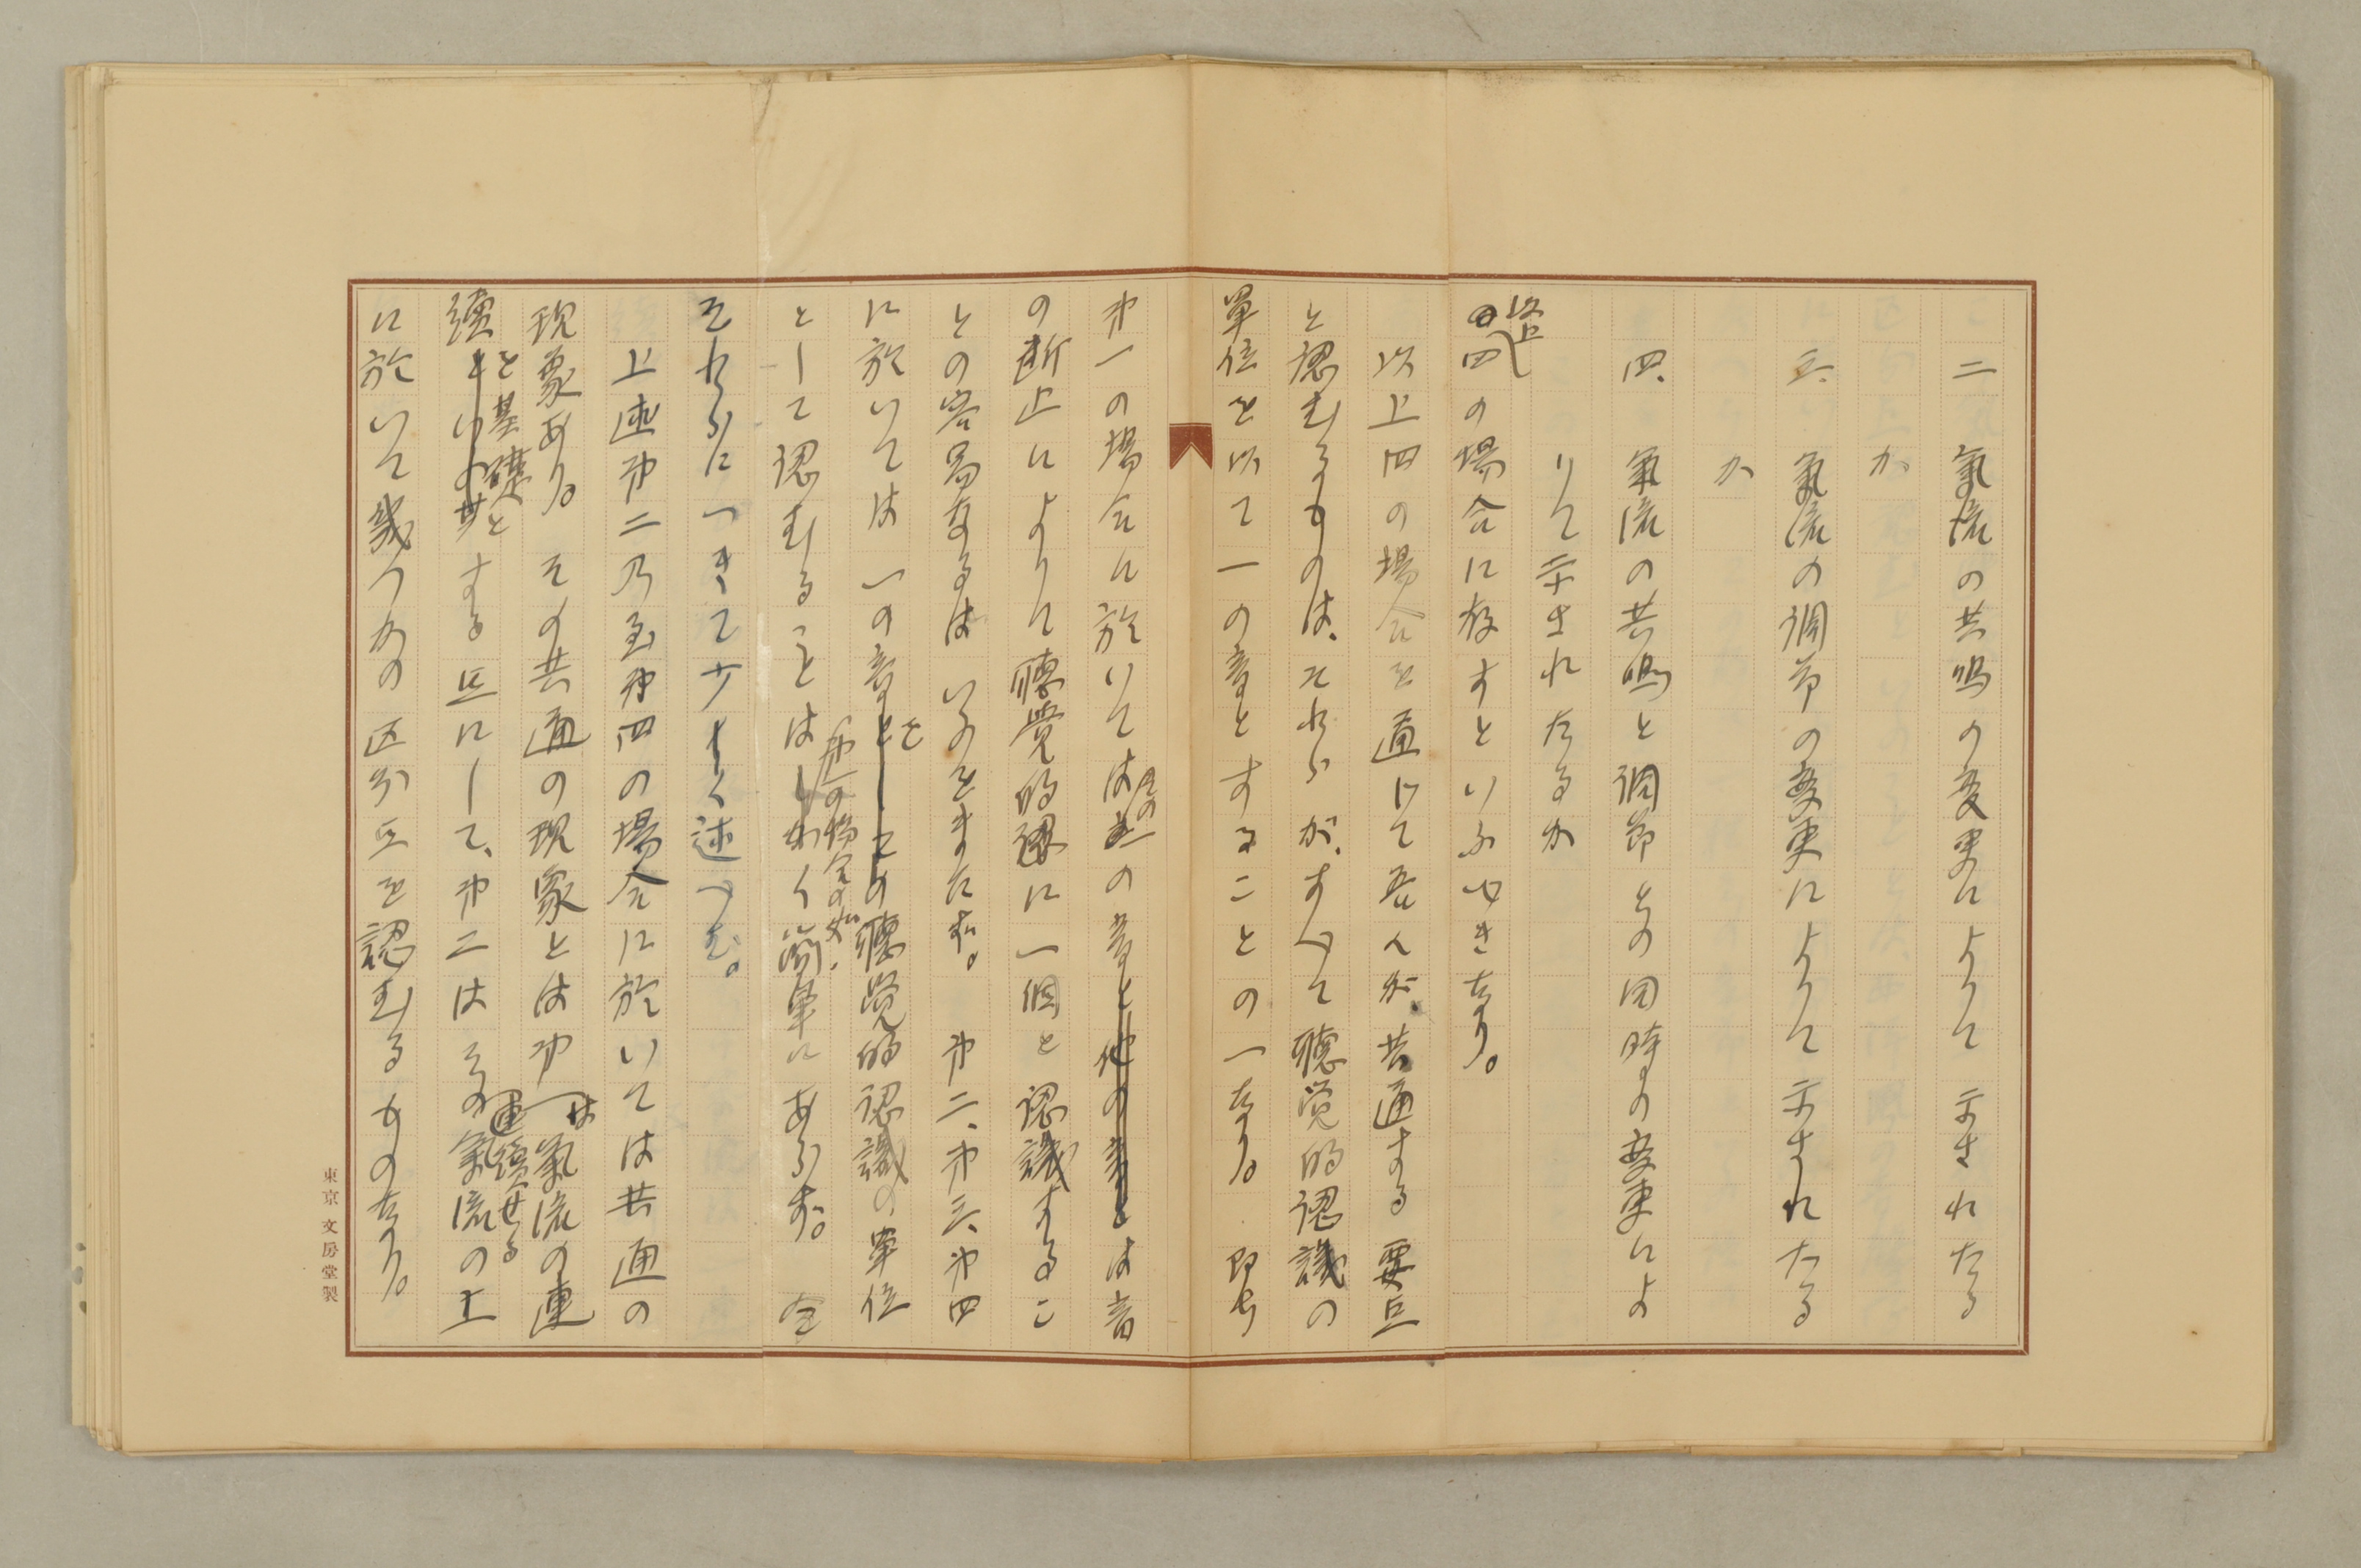 二　氣流の共鳴の変更によりて示されたる
か
三、氣流の調節の変更によりて示されたる
か
四、氣流の共鳴と調節との同時の変更によ
りて示されたるか
以上
の四の場合に存すといふべきなり。
以上四の場合を通じて吾人が、共通する要点
と認むるものは、それらが、すべて聴覚的認識の
單位を以て一の音とすることの一なり。即ち
第一の場合に於いては一の音とは音
の断止によりて聴覚的に一個と認識するこ
との容易なるはいふをまたず。第二、第三、第四
に於いては一の音をの聴覚的認識の單位
として認むることは第一の場合の如く簡單にあらず。今
それらにつきて少しく述べむ。
上述第二乃至第四の場合に於いては共通の
現象あり。その共通の現象とは第一は氣流の連
續を基礎とする点にして、第二はその連續せる氣流の上
に於いて幾つかの区分点を認むるものなり。
東京 文房堂製